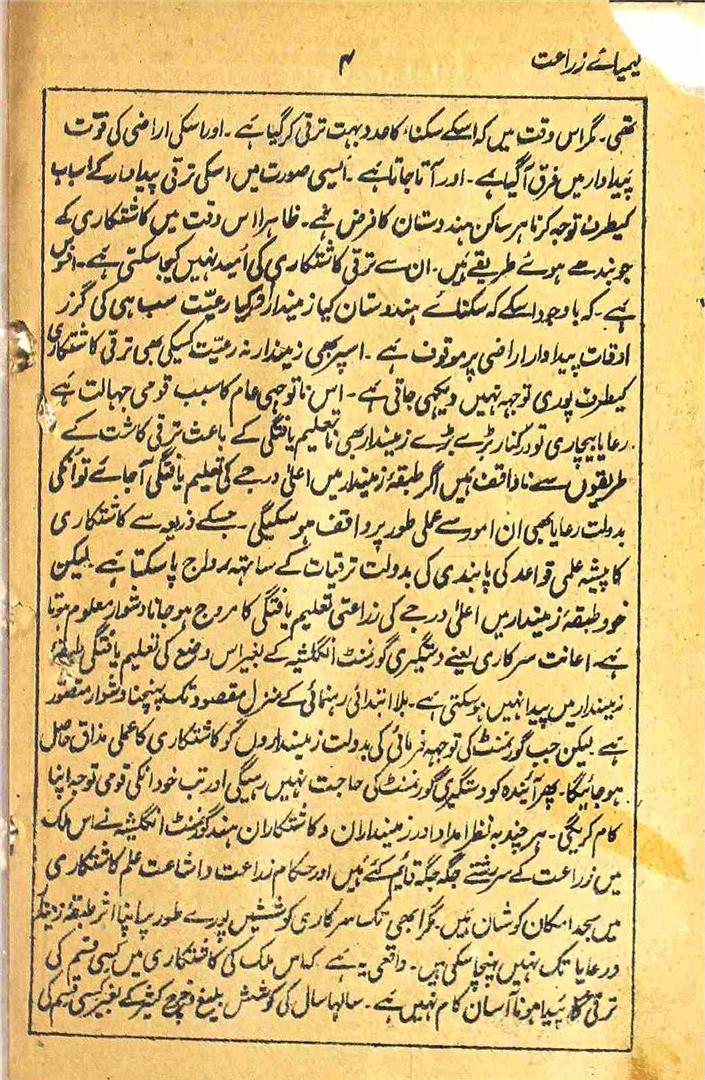 کیمیائے زراعت
۴
تھی۔ مگر اس وقت میں کہ اسکے سکناء کا عدد بہت ترقی کر گیا ہے۔ اور اسکی اراضی کی قوّت
پیداوار میں فرق آ گیا ہے۔ اور آتا جاتا ہے۔ ایسی صورت میں اسکی ترقی پیداوار کے اسباب
کیطرف توجہ کرنا ہر ساکن ہندوستان کا فرض ہے۔ ظاہرا اس وقت میں کاشتکاری کے
جو بندھے ہوئے طریقے ہیں۔ ان سے ترقی کاشتکاری کی اُمید نہیں کیجا سکتی ہے۔ افسوس
ہے۔ کہ باوجود اسکے کہ سکنائے ہندوستان کیا زمیندار اور کیا رعیّت سب ہی کی گزر
اوقات پیداوار اراضی پر موقوف ہے۔ اسپر بھی زمیندار نہ رعیّت کسیکی بھی ترقی کاشتکاری
کیطرف پوری توجہہ نہیں دیکھی جاتی ہے۔ اس ناتوجہی عام کا سبب قومی جہالت ہے
رعایا بیچاری تو درکنار بڑے بڑے زمیندار بھی ناتعلیم یافتگی کے باعث ترقی کاشت کے
طریقوں سے ناواقف ہیں اگر طبقۂ زمیندار میں اعلیٰ درجے کی تعلیم یافتگی آ جائے تو اُنکی
بدولت رعایا بھی ان امور سے عملی طور پر واقف ہو سکیگی۔ جسکے ذریعہ سے کاشتکاری
کا پیشہ علمی قواعد کی پابندی کی بدولت ترقیات کے ساتہہ رواج پا سکتا ہے لیکن
خود طبقۂ زمیندار میں اعلیٰ درجے کی زراعتی تعلیم یافتگی کا مروج ہو جانا دشوار معلوم ہوتا
ہے۔ اعانت سرکاری یعنے دستگیری گورنمنٹ انگلشیہ کے بغیر اس وضع کی تعلیم یافتگی طبقۂ
زمیندار میں پیدا نہیں ہو سکتی ہے۔ بلا ابتدائی رہنمائی کے منزل مقصود تک پہنچنا دشوار متصور
ہے لیکن جب گورنمنٹ کی توجہہ فرمائی کی بدولت زمینداروں کو کاشتکاری کا عملی مذاق حاصل
ہو جائیگا۔ پھر آئیندہ کو دستگیری گورنمنٹ کی حاجت نہیں رہیگی اور تب خود انکی قومی توجہ اپنا
کام کریگی۔ ہر چند بہ نظر امداد زمینداران و کاشتکاران ہند گورنمنٹ انگلشیہ نے اس ملک
میں زراعت کے سررشتے جگہ جگہ قائم کئے ہیں اور حکام زراعت و اشاعت علم کاشتکاری
میں بحد امکان کوشان ہیں۔ مگر ابھی تک سرکاری کوششیں پورے طور پر اپنا اثر طبقۂ زمیندار
و رعایا تک نہیں پہنچا سکی ہیں۔ واقعی یہ ہے کہ اس ملک کی کاشتکاری میں کسی قسم کی
ترقی کا پیدا ہونا آسان کام نہیں ہے۔ سالہا سال کی کوشش بلیغ و خرچ کثیر کے بغیر کسی قسم کی